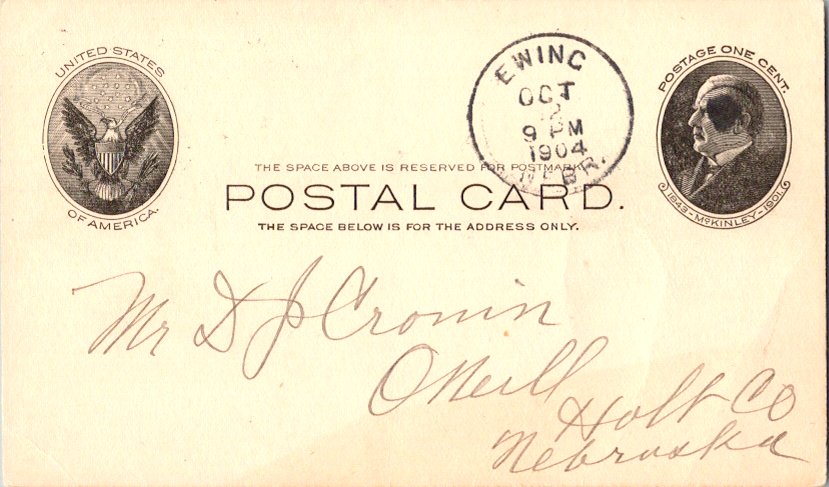 UNITED STATES
OF AMERICA.
EWING
OCT
2
9 PM
1904
NEBR.
POSTAGE ONE CENT.
1843-McKINLEY-1901
THE SPACE ABOVE IS RESERVED FOR POSTMARK
POSTAL CARD.
THE SPACE BELOW IS FOR THE ADDRESS ONLY.
Mr D J Cronin
O'Neill
Holt Co
Nebraska